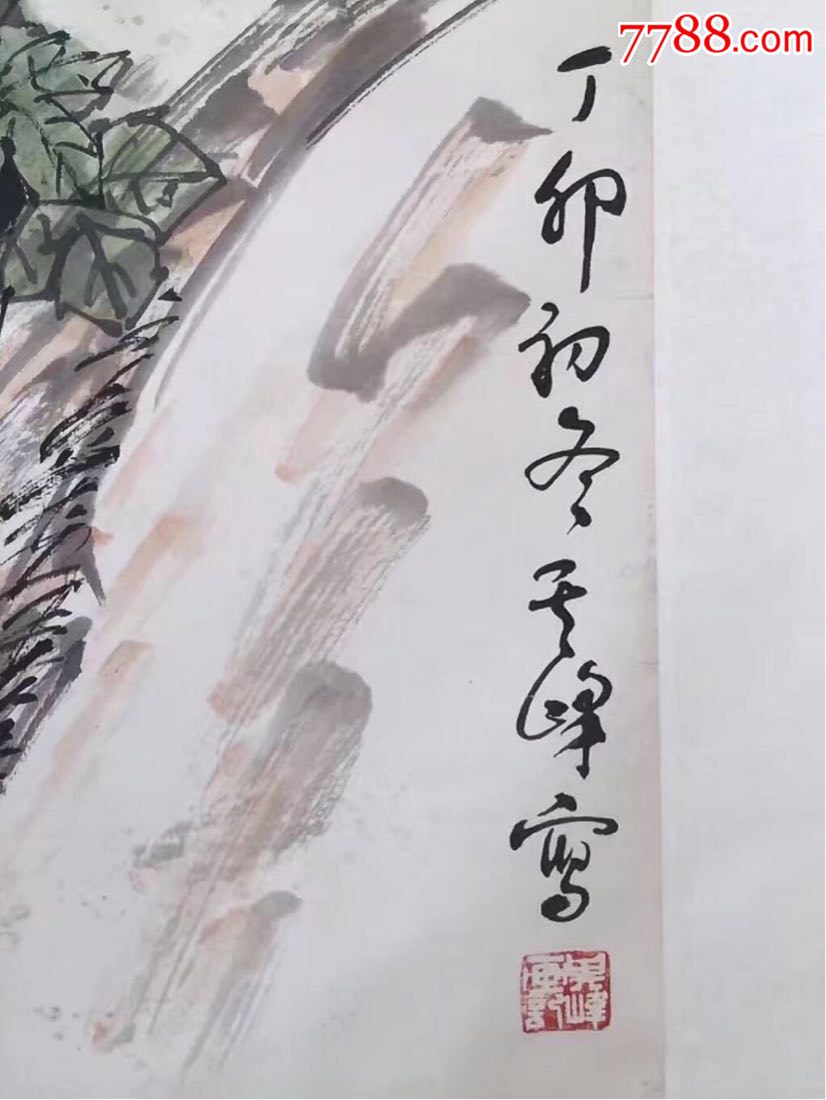 7788.com
丁卯初冬其峰寫